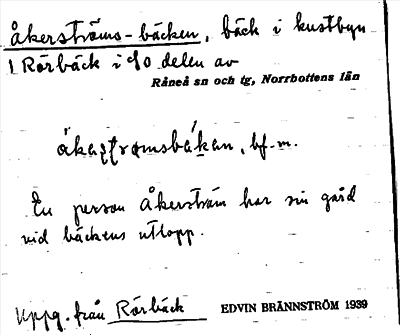 åkerströms-bäcken, bäck i kustbyn
1 Rörbäck i SO delen av
Råneå sn och tg, Norrbottens län
En person Åkerström har sin gård
vid bäckens utlopp.
Uppg. från Rörbäck EDVIN BRÄNNSTRÖM 1939